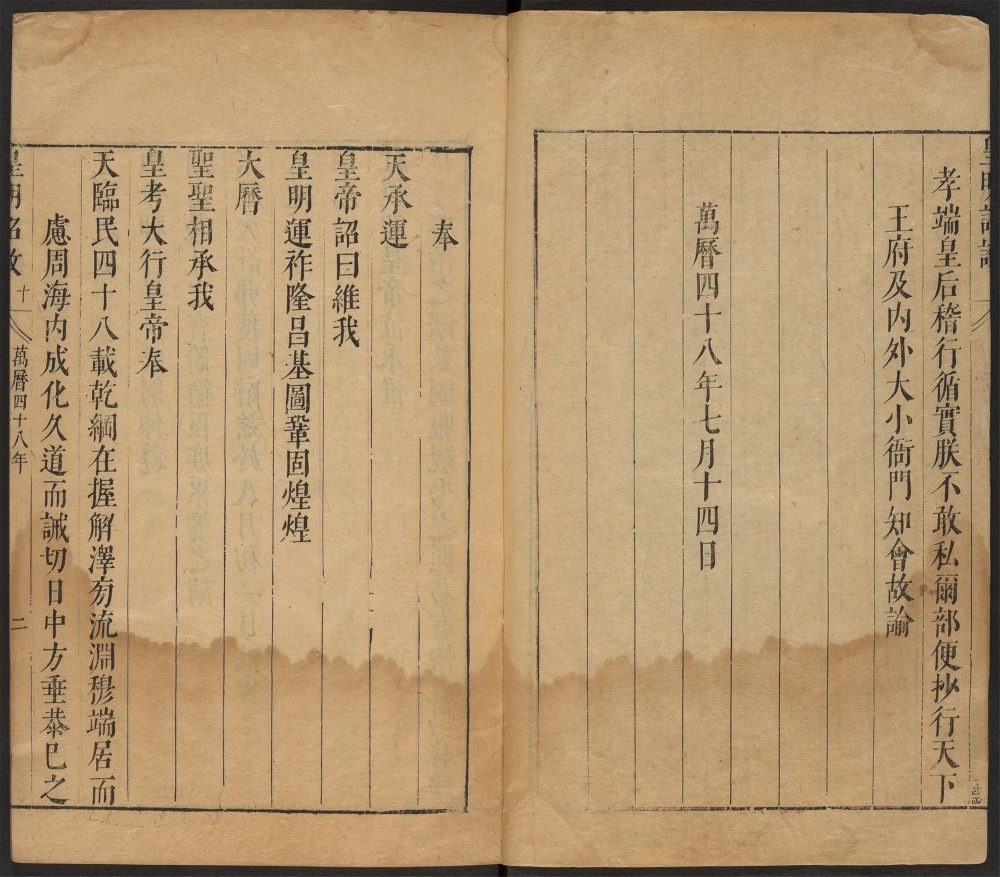 孝端皇后稽行循實朕不敢私爾部便抄行天下
王府及內外大小衙門知會故諭
萬曆四十八年七月十四日
奉
天承運
皇帝詔曰維我
皇明運祚隆昌基圖鞏固煌煌
大曆
聖聖相承我
皇考大行皇帝奉
天臨民四十八載乾綱在握解澤旁流淵穆端居而
慮周海內成化久道而誡切日中方垂恭巳之
皇明詔 十 萬曆四十八年 二